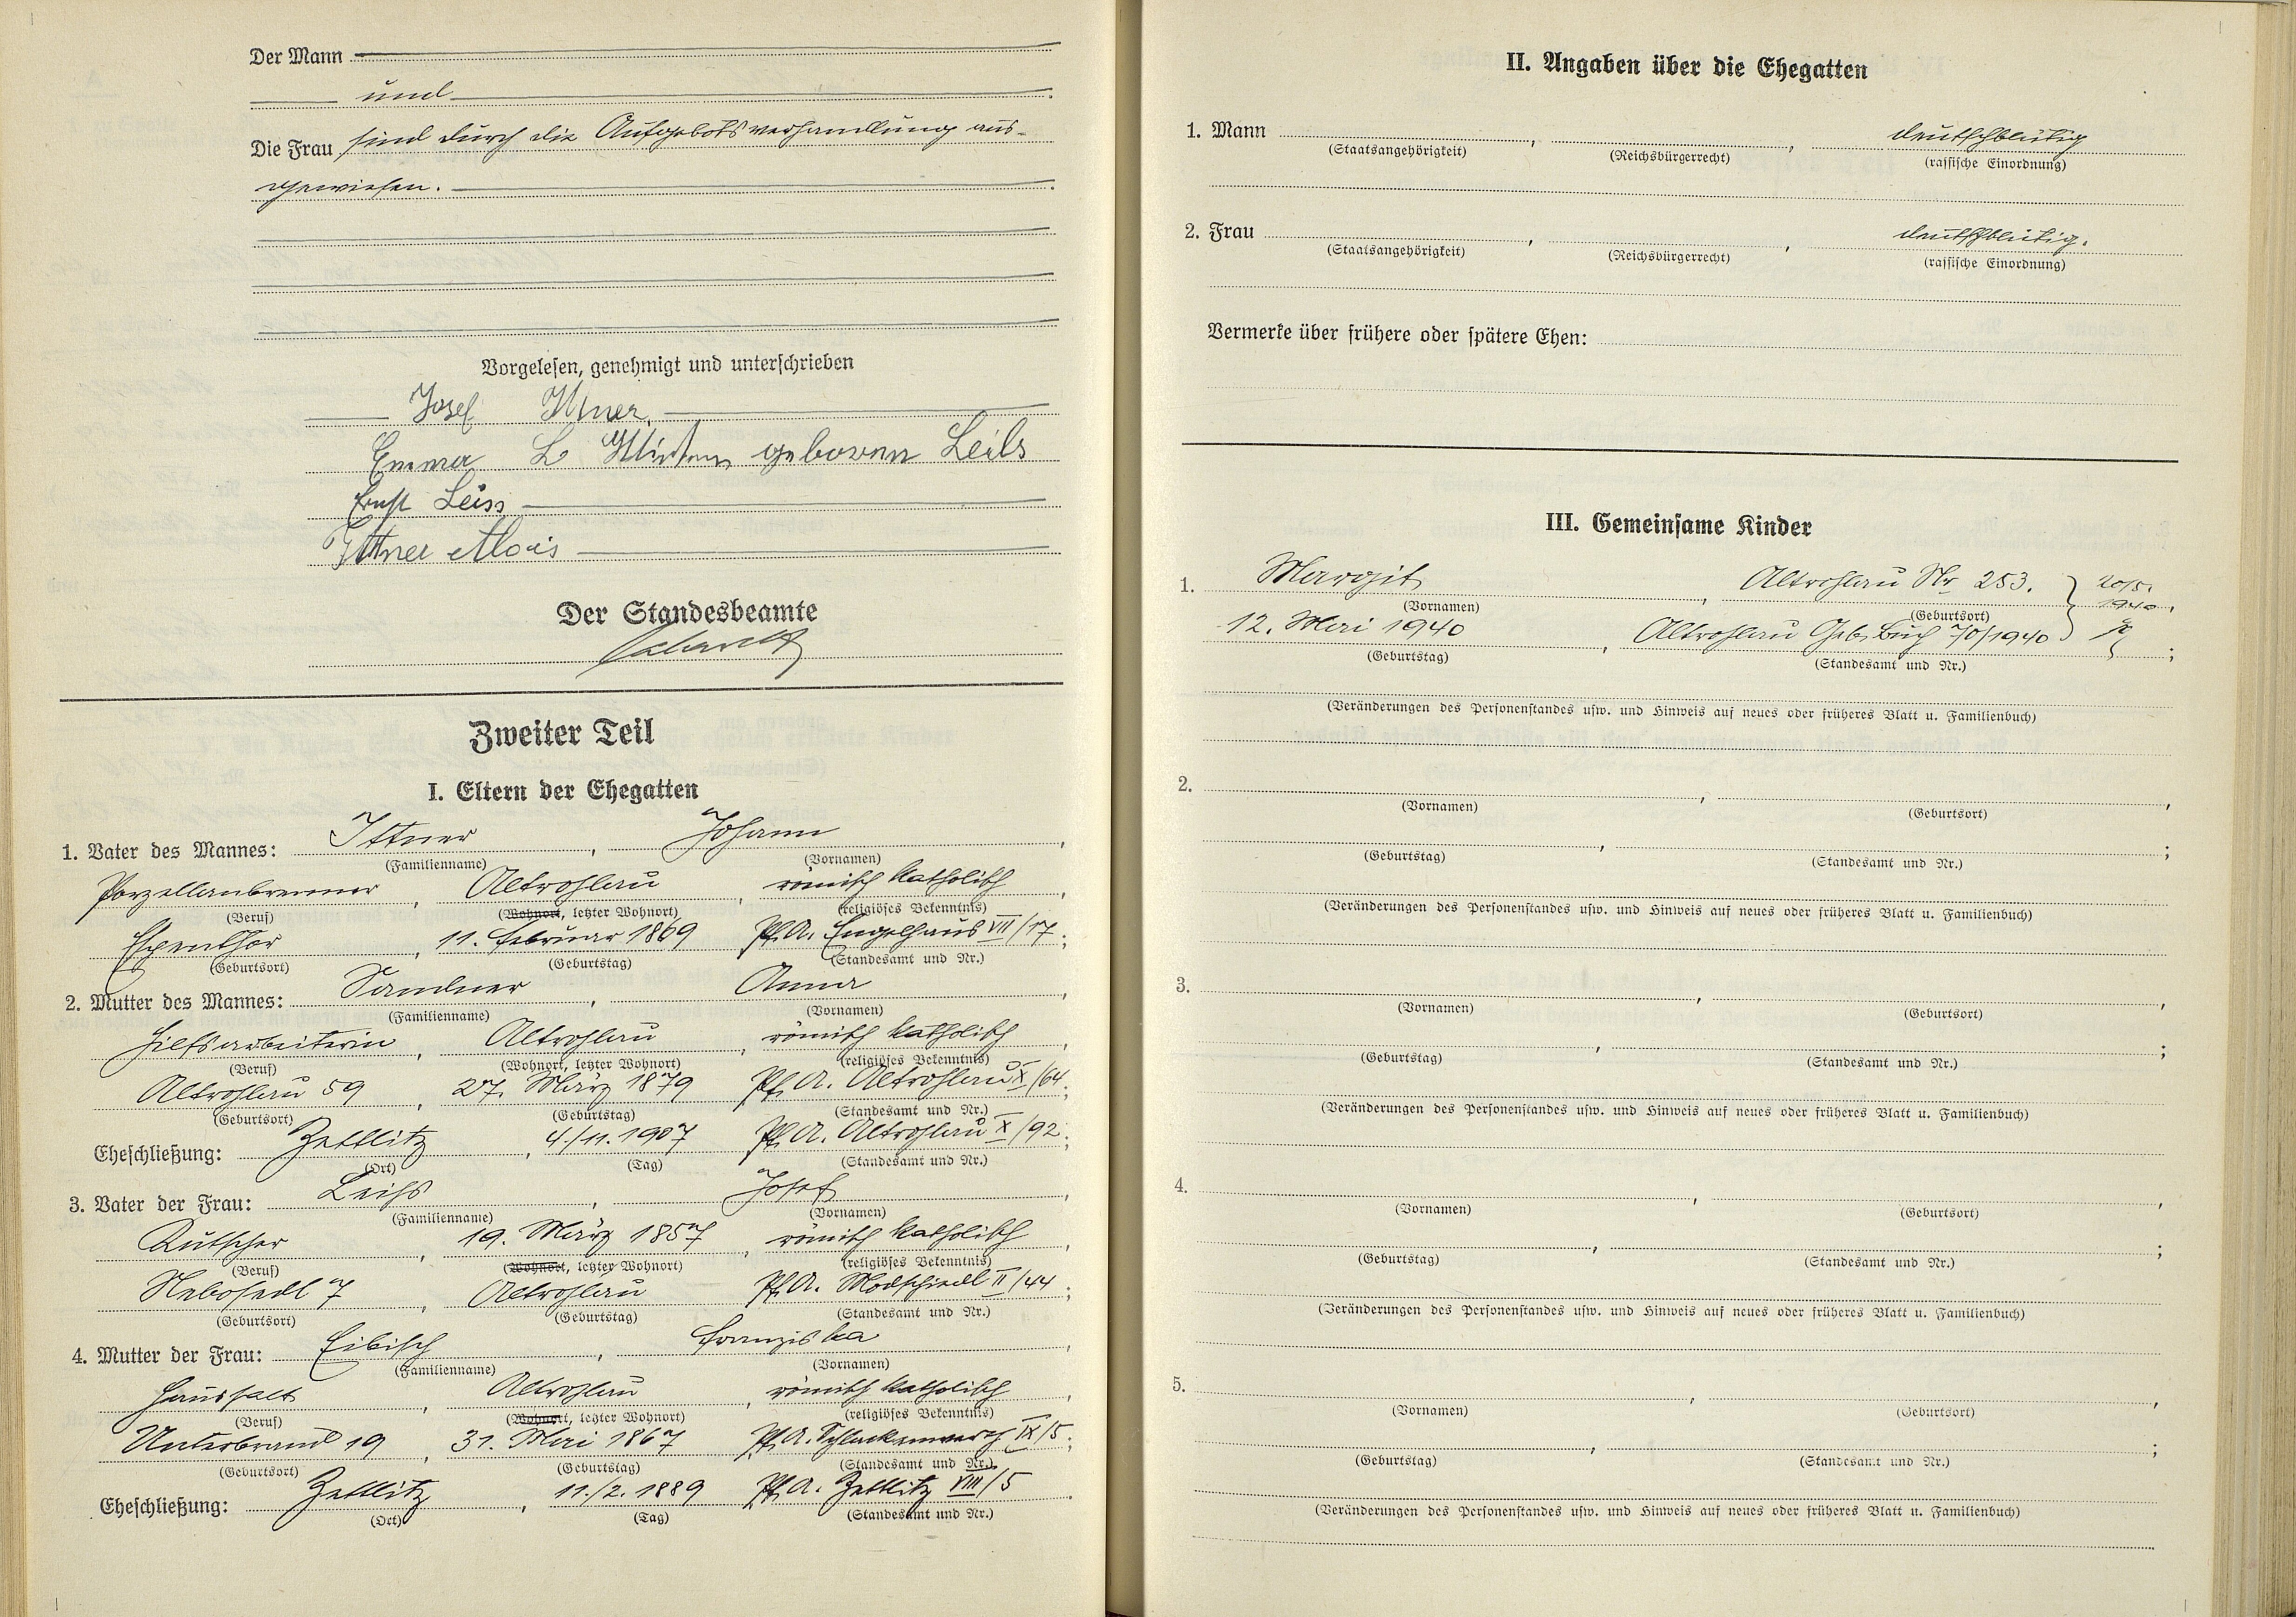 Der Mann
und
Die Frau sind durch die Aufgebotsverhandlung aus-
gewiesen.
Vorgelesen, genehmigt und unterschrieben
Josef Ittner.
Emma L Ittner geborene Leiß
Ernst Leiss
Ittner Alois
Der Standesbeamte
Zweiter Teil
I. Eltern der Ehegatten
1. Vater des Mannes: Ittner, Johann,
(Familienname) (Vornamen)
Porzellanbrenner, Altrohlau, römisch katholisch,
(Beruf) (Wohnort, letzter Wohnort) (religiöses Bekenntnis)
Espenthor, 11. Februar 1869 Pf.A. Engelhaus VII/17;
(Geburtsort) (Geburtstag) (Standesamt und Nr.)
2. Mutter des Mannes: Sandner, Anna,
(Familienname) (Vornamen)
Hilfsarbeiterin, Altrohlau, römisch katholisch,
(Beruf) (Wohnort, letzter Wohnort) (religiöses Bekenntnis)
Altrohlau 59, 27. März 1879 Pf.A. Altrohlau X/64;
(Geburtsort) (Geburtstag) (Standesamt und Nr.)
Eheschließung: Zettlitz, 4./11.1907 Pf.A. Altrohlau X/92;
(Ort) (Tag) (Standesamt und Nr.)
3. Vater der Frau: Leiß, Josef,
(Familienname) (Vornamen)
Kutscher, 19. März 1857, römisch katholisch,
(Beruf) (Wohnort, letzter Wohnort) (religiöses Bekenntnis)
Nebosedl 7, Altrohlau Pf.A. Modschiedl II/44;
(Geburtsort) (Geburtstag) (Standesamt und Nr.)
4. Mutter der Frau: Eibisch, Franziska,
(Familienname) (Vornamen)
Haushalt, Altrohlau, römisch katholisch,
(Beruf) (Wohnort, letzter Wohnort) (religiöses Bekenntnis)
Unterbrand 19, 31. Mai 1867 Pf.A. Schlackenwerth IX/5;
(Geburtsort) (Geburtstag) (Standesamt und Nr.)
Eheschließung: Zettlitz, 11./2.1889 Pf.A. Zettlitz VIII/5.
(Ort) (Tag) (Standesamt und Nr.)
II. Angaben über die Ehegatten
1. Mann , , deutschblütig
(Staatsangehörigkeit) (Reichsbürgerrecht) (rassische Einordnung)
2. Frau , , deutschblütig.
(Staatsangehörigkeit) (Reichsbürgerrecht) (rassische Einordnung)
Vermerke über frühere oder spätere Ehen:
III. Gemeinsame Kinder
1. Margit, Altrohlau Nr 253. 20/5. 1940,
(Vornamen) (Geburtsort)
12. Mai 1940, Altrohlau Geb. Buch 70/1940;
(Geburtstag) (Standesamt und Nr.)
(Veränderungen des Personenstandes usw. und Hinweis auf neues oder früheres Blatt u. Familienbuch)
2. , ,
(Vornamen) (Geburtsort)
, ;
(Geburtstag) (Standesamt und Nr.)
(Veränderungen des Personenstandes usw. und Hinweis auf neues oder früheres Blatt u. Familienbuch)
3. , ,
(Vornamen) (Geburtsort)
, ;
(Geburtstag) (Standesamt und Nr.)
(Veränderungen des Personenstandes usw. und Hinweis auf neues oder früheres Blatt u. Familienbuch)
4. , ,
(Vornamen) (Geburtsort)
, ;
(Geburtstag) (Standesamt und Nr.)
(Veränderungen des Personenstandes usw. und Hinweis auf neues oder früheres Blatt u. Familienbuch)
5. , ,
(Vornamen) (Geburtsort)
, ;
(Geburtstag) (Standesamt und Nr.)
(Veränderungen des Personenstandes usw. und Hinweis auf neues oder früheres Blatt u. Familienbuch)